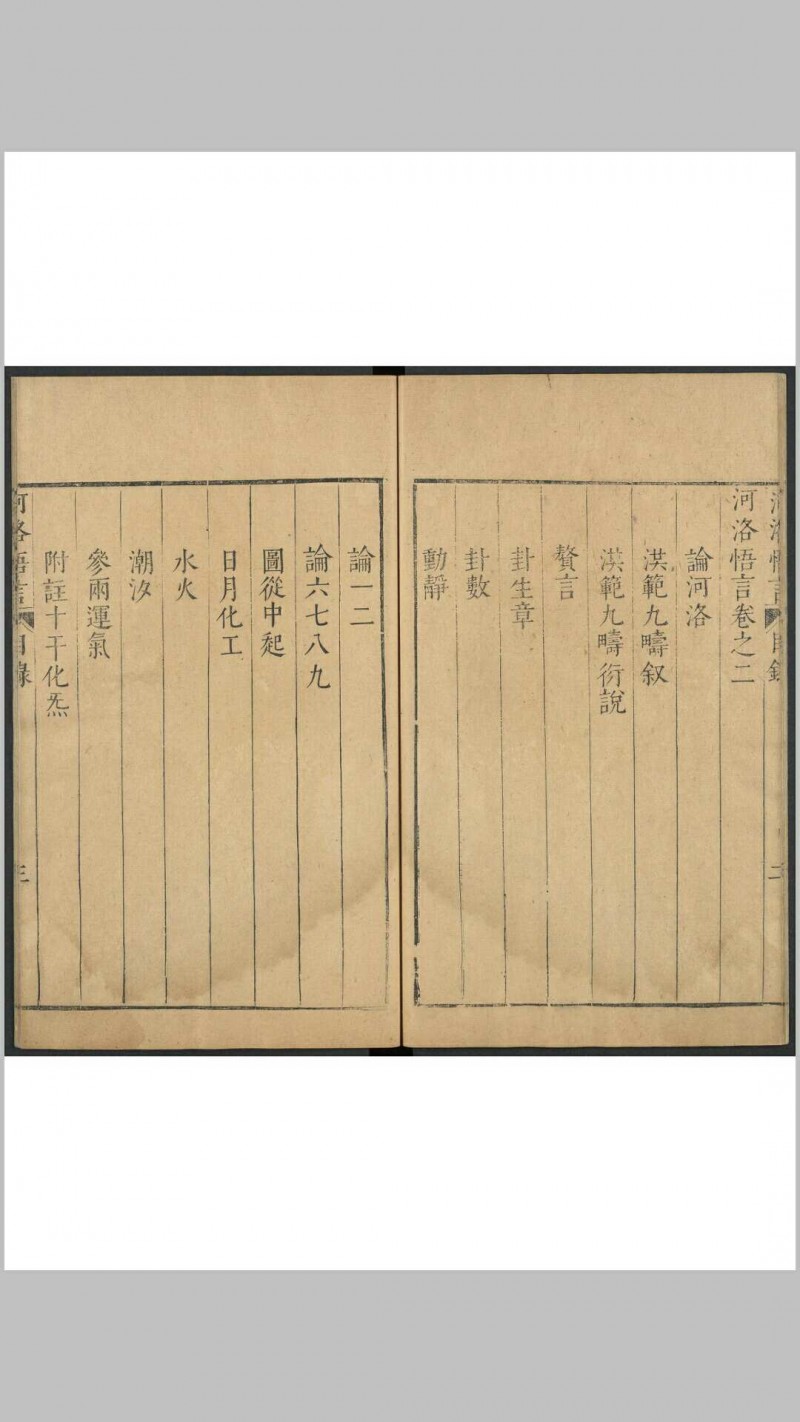 河洛悟言 目錄 二
河洛悟言卷之二
論河洛
洪範九疇叙
洪範九疇衍說
贅言
卦生章
卦數
動靜
論一二
論六七八九
圖從中起
日月化工
水火
潮汐
參兩運氣
附註十干化炁
河洛悟言 目錄 三